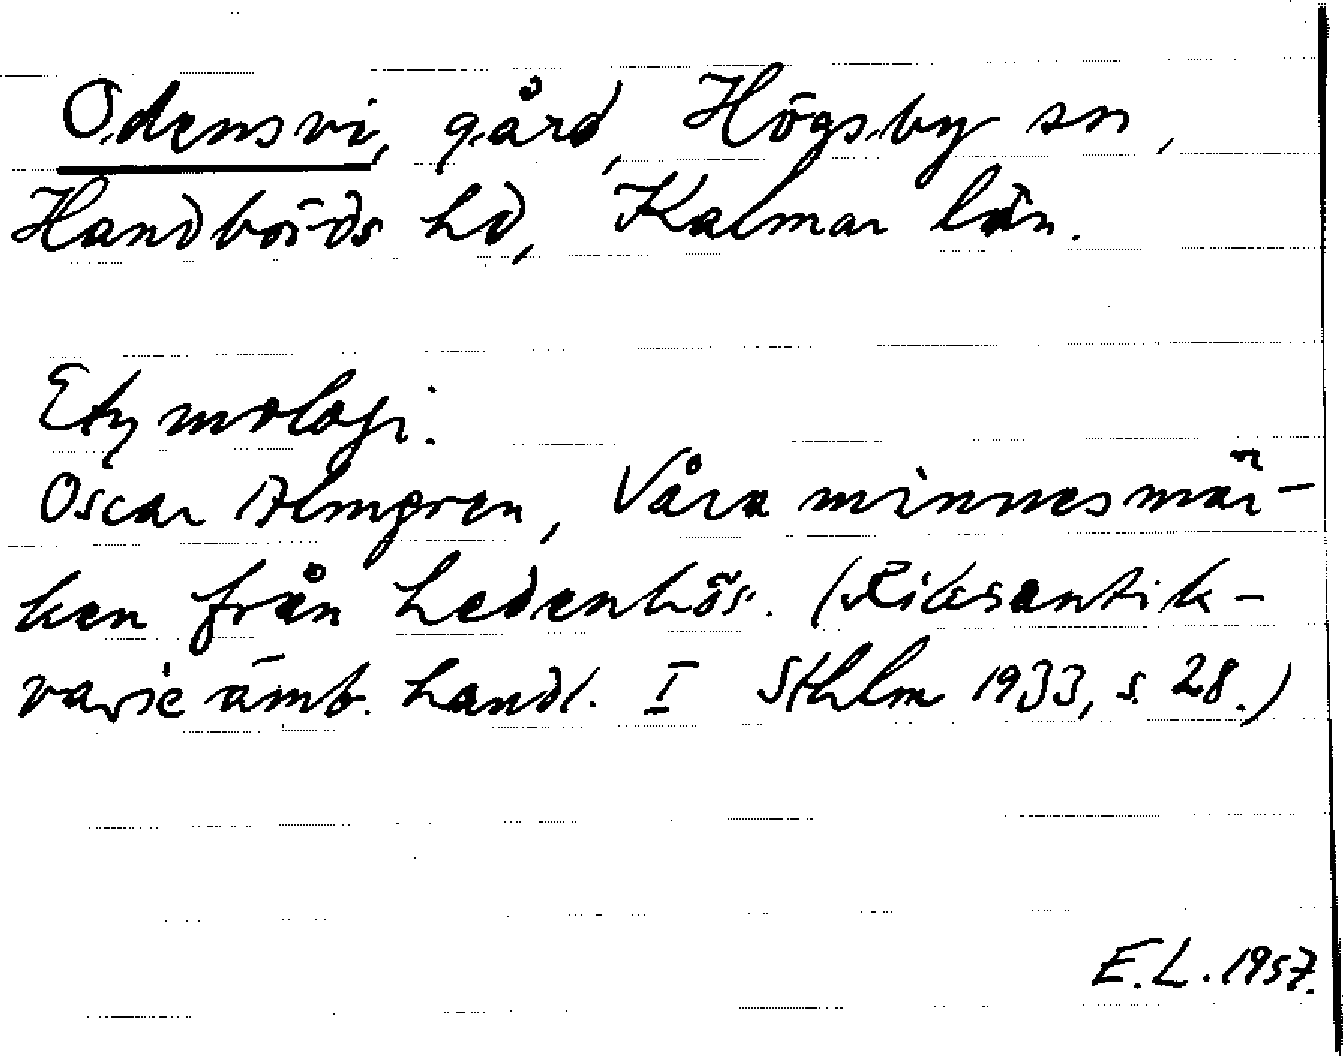 Odensvi, gård, Högsby sn,
Handbörds hd, Kalmar län.
Etymologi.
Oscar Almgren, Våra minnesmär-
ken från hedenhös. (Riksantik-
varie ämb. handl. I Sthlm 1933, s. 28.)
E.L. 1957.